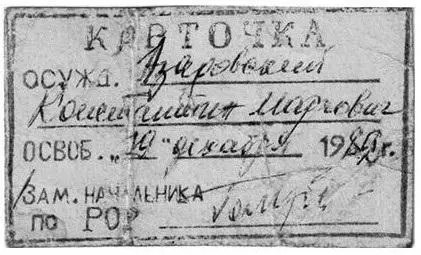 КАРТОЧКА
ОСУЖД. Азаровский
Константин Маркович
ОСВОБ. „19" декабря 1982 г.
ЗАМ. НАЧАЛЬНИКА
ПО РОР